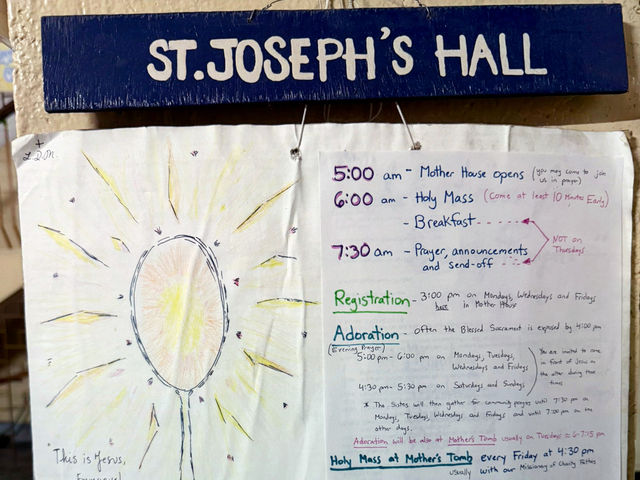 ST. JOSEPH'S HALL
+
L.D.M.
5:00 am - Mother House opens (you may come to join
us in prayer)
6:00 am - Holy Mass (Come at least 10 Minutes Early)
- Breakfast
NOT on
Thursdays
7:30 am - Prayer, announcements
and send-off
Registration - 3:00 pm on Mondays, Wednesdays and Fridays
here in Mother House
Adoration - often the Blessed Sacrament is exposed by 4:00 pm
(Evening Prayer)
5:00 pm - 6:00 pm on Mondays, Tuesdays,
Wednesdays and Fridays
4:30 pm - 5:30 pm on Saturdays and Sundays
You are invited to come
in front of Jesus on
the altar during those
times
* The Sisters will then gather for community prayer until 7:30 pm on
Mondays, Tuesdays, Wednesdays and Fridays and until 7:00 pm on the
other days.
Adoration will be also at Mother's Tomb usually on Tuesdays ≈ 6-7:15 pm
Holy Mass at Mother's Tomb every Friday at 4:30 pm
usually with our Missionary of Charity Fathers
"This is Jesus,